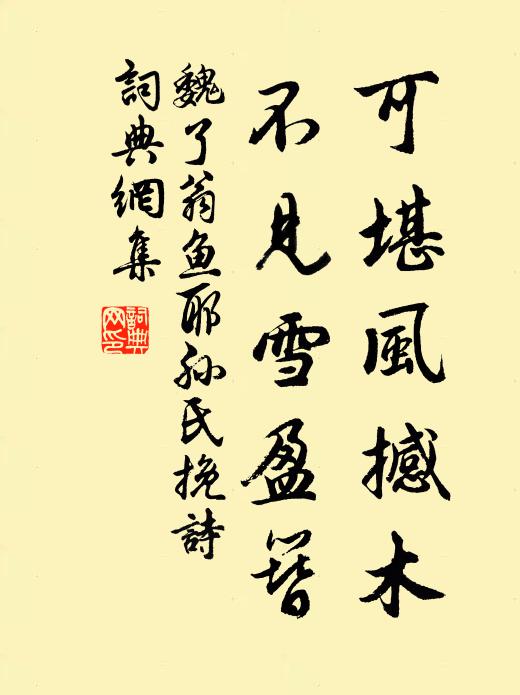 可堪風撼木
不見雪盈簪
魏了翁魚耶孙氏挽詩
詞典網集
詞典
网印